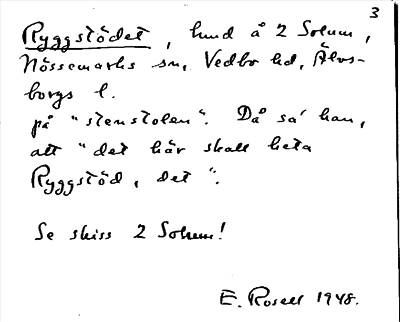 3
Ryggstödet, lund å 2 Solum,
Nössemarks sn, Vedbo hd, Älvs-
borgs l.
på "stenstolen". Då sa' han,
att "det här skall heta
Ryggstöd, det".
Se skiss 2 Solum!
E. Rosell 1948.